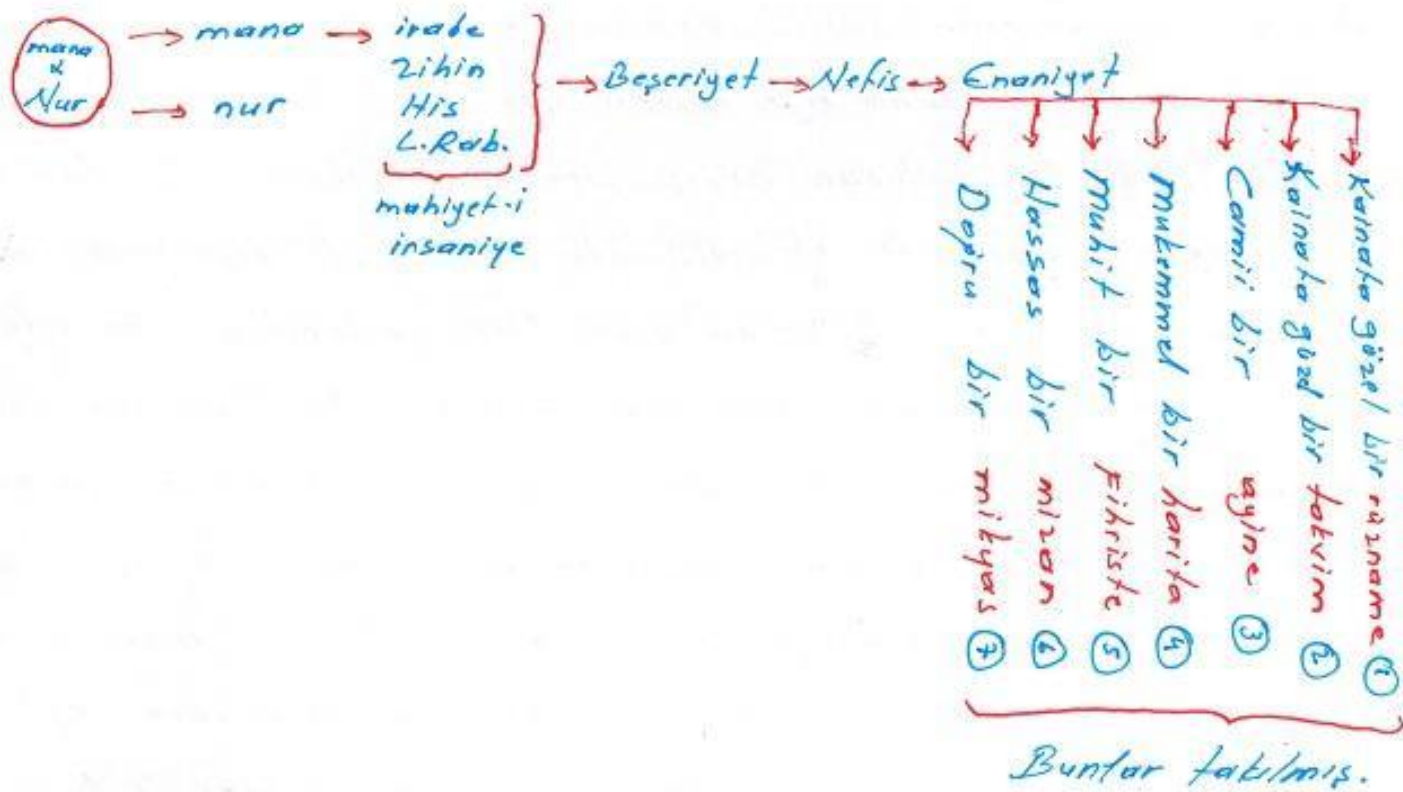 mana
&
Nur
→ mana →
→ nur
irade
Zihin
His
L.Rab.
mahiyet-i
insaniye
→ Beşeriyet → Nefis → Enaniyet
Kainata güzel bir rûzname 1
Kainata güzel bir takvim 2
Camii bir ayine 3
Mükemmel bir harita 4
Muhit bir Fihriste 5
Hassas bir mizan 6
Doğru bir mikyas 7
Bunlar takılmış.